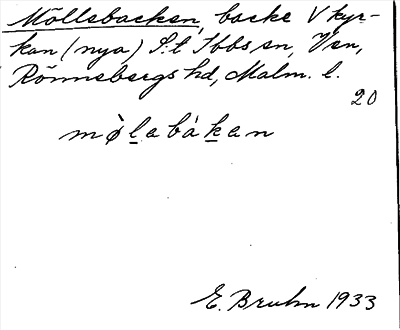 Möllebacken, backe V kyr-
kan (nya) S:t Ibbs sn, Ven,
Rönnebergs hd, Malm. l.
20
mø̀lebákan
E. Bruhn 1933